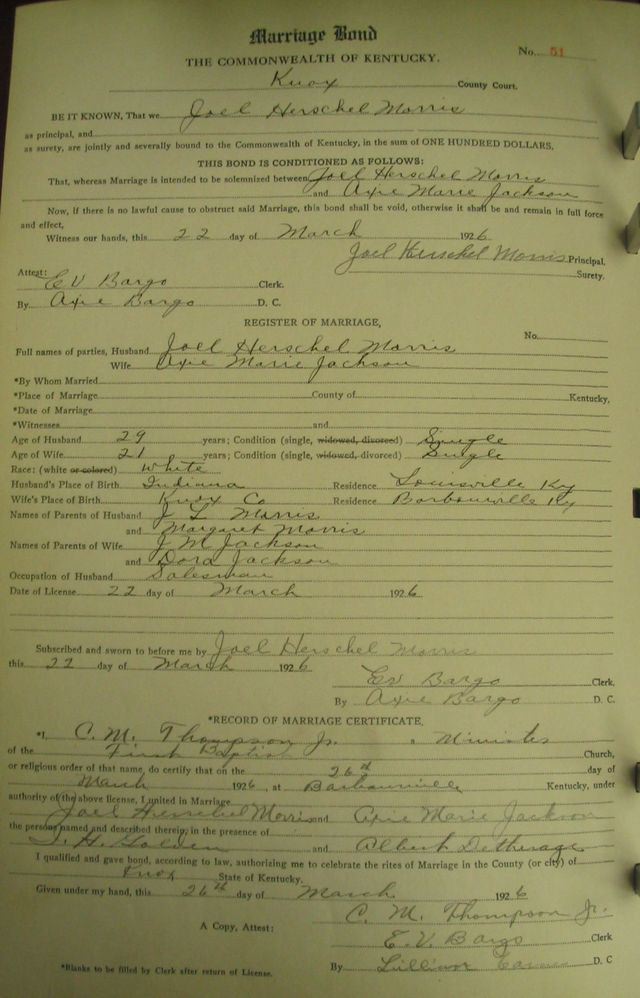 Marriage Bond
No. 51
THE COMMONWEALTH OF KENTUCKY.
Knox County Court.
BE IT KNOWN, That we Joel Herschel Morris
as principal, and
as surety, are jointly and severally bound to the Commonwealth of Kentucky, in the sum of ONE HUNDRED DOLLARS,
THIS BOND IS CONDITIONED AS FOLLOWS:
That, whereas Marriage is intended to be solemnized between Joel Herschel Morris
and Axie Marie Jackson
Now, if there is no lawful cause to obstruct said Marriage, this bond shall be void, otherwise it shall be and remain in full force
and effect,
Witness our hands, this 22 day of March 1926
Joel Herschel Morris Principal,
Surety.
Attest:
EV Bargo Clerk.
By Axie Bargo D. C.
REGISTER OF MARRIAGE,
No.
Full names of parties, Husband Joel Herschel Morris
Wife Axie Marie Jackson
*By Whom Married
*Place of Marriage County of Kentucky,
*Date of Marriage
*Witnesses and
Age of Husband 29 years; Condition (single, widowed, divorced) Single
Age of Wife 21 years; Condition (single, widowed, divorced) Single
Race: (white or colored) White
Husband's Place of Birth Indiana Residence Louisville Ky
Wife's Place of Birth Knox Co Residence Barbourville Ky
Names of Parents of Husband J L Morris
and Margaret Morris
Names of Parents of Wife J M Jackson
and Dora Jackson
Occupation of Husband Salesman
Date of License 22 day of March 1926
Subscribed and sworn to before me by Joel Herschel Morris
this 22 day of March 1926
EV Bargo Clerk.
By Axie Bargo D. C.
*RECORD OF MARRIAGE CERTIFICATE.
*I, C. M. Thompson Jr. a Minister
of the First Baptist Church,
or religious order of that name, do certify that on the 26th day of
March 1926, at Barbourville Kentucky, under
authority of the above license, I united in Marriage
Joel Herschel Morris and Axie Marie Jackson
the persons named and described therein, in the presence of
Golden and Albert Detherage
I qualified and gave bond, according to law, authorizing me to celebrate the rites of Marriage in the County (or city) of
Knox State of Kentucky.
Given under my hand, this 26th day of March 1926
C. M. Thompson Jr.
A Copy, Attest:
E. V. Bargo Clerk
By D. C
*Blanks to be filled by Clerk after return of License.